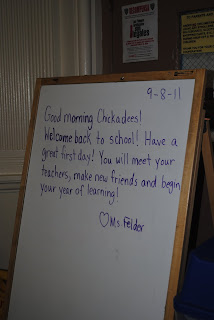 9-8-11
Good morning Chickadees!
Welcome back to school! Have a
great first day! You will meet your
teachers, make new friends and begin
your year of learning!
♡Ms Felder